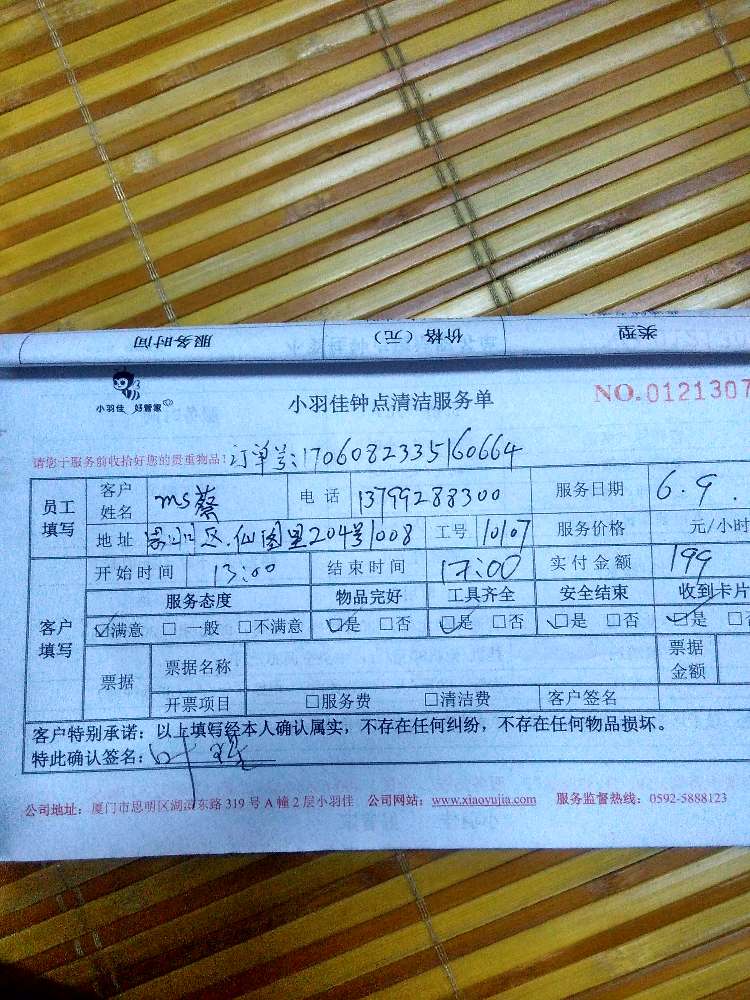 类型 价格（元） 服务时间
小羽佳 好管家
小羽佳钟点清洁服务单
NO.0121307
请您于服务前收拾好您的贵重物品！订单号:1706082335160664
员工填写 客户姓名 ms蔡 电话 13799288300 服务日期 6.9.
地址 区.仙图里204号1008 工号 10107 服务价格 元/小时
客户填写 开始时间 13:00 结束时间 17:00 实付金额 199
服务态度 物品完好 工具齐全 安全结束 收到卡片
☑满意 □一般 □不满意 ☑是 □否 ☑是 □否 ☑是 □否 ☑是 □否
票据 票据名称 票据金额
开票项目 □服务费 □清洁费 客户签名
客户特别承诺：以上填写经本人确认属实，不存在任何纠纷，不存在任何物品损坏。
特此确认签名：
公司地址：厦门市思明区湖滨东路319号A幢2层小羽佳 公司网站：www.xiaoyujia.com 服务监督热线：0592-5888123